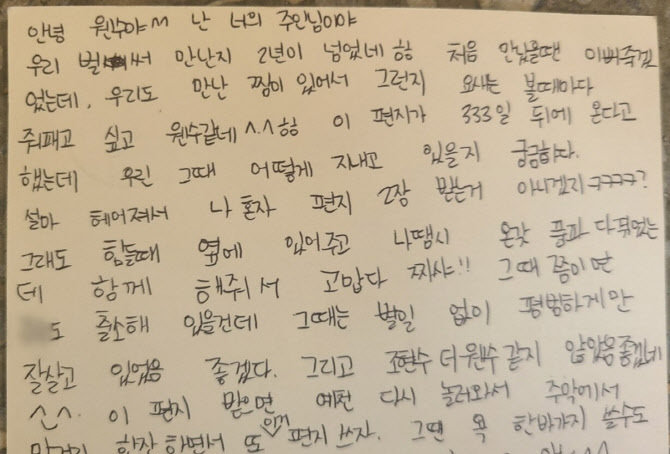 안녕 원수야^^ 난 너의 주인님이야
우리 벌써 만난지 2년이 넘었네 ㅎㅎ 처음 만났을땐 이뻐죽겠
었는데, 우리도 만난 찜이 있어서 그런지 요새는 볼때마다
줘패고 싶고 원수같네^.^ㅎㅎ 이 편지가 333일 뒤에 온다고
했는데 우린 그때 어떻게 지내고 있을지 궁금하다.
설마 헤어져서 나 혼자 편지 2장 받는거 아니겠지ㅋㅋㅋㅋ?
그래도 힘들때 옆에 있어주고 나땜시 온갖 풍파 다 겪었는
데 함께 해줘서 고맙다 짜샤!! 그때 쯤이면
도 출소해 있을건데 그때는 별일 없이 평범하게만
잘살고 있었음 좋겠다. 그리고 조현수 더 원수 같지 않았음 좋겠네
^.^. 이 편지 받으면 예천 다시 놀러와서 주막에서
한잔 하면서 또 이거 편지 쓰자. 그땐 욕 한바가지 쓸수도